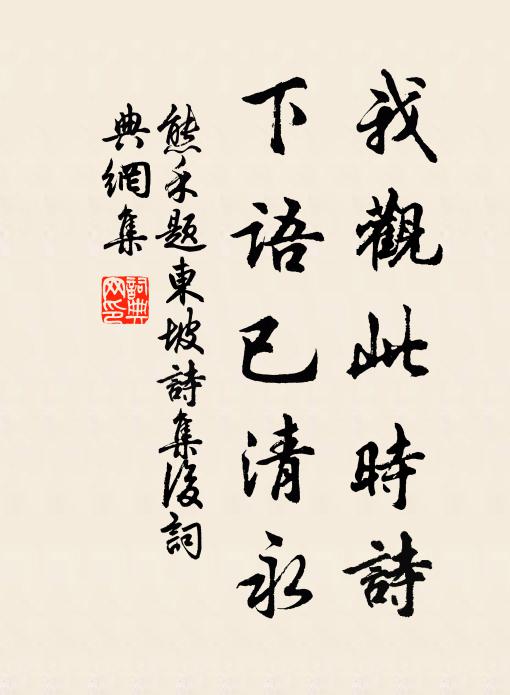 我觀此時詩
下語已清永
熊禾題東坡詩集後詞
典網集
詞典網印